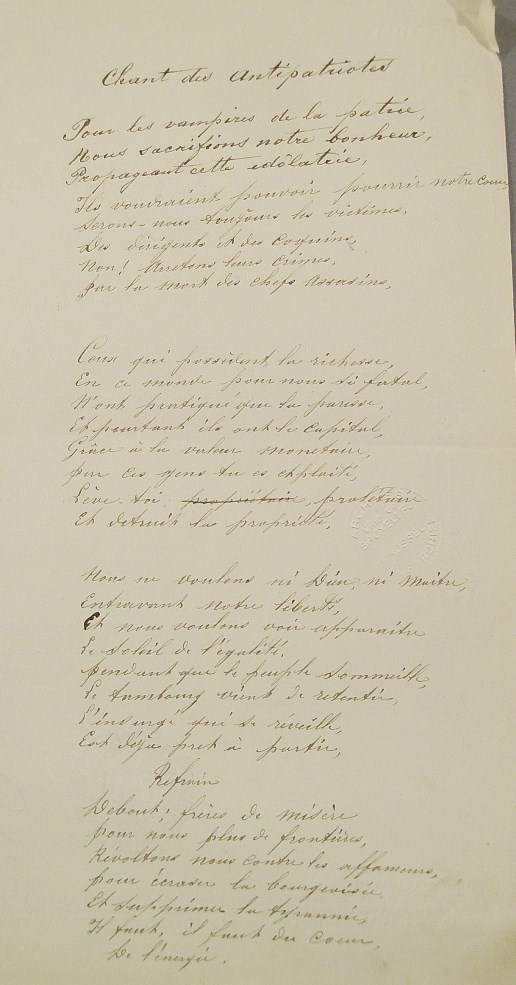 Chant des Antipatriotes
Pour les vampires de la patrie,
Nous sacrifions notre bonheur,
Propageant cette idôlatrie,
Ils voudraient pouvoir pourrir notre Coeur,
Serons-nous toujours les victimes,
Des dirigents et des Coquins,
Non! Arretons leurs Crimes,
Par la Mort des Chefs Assasins,
Ceux qui possèdent la richesse,
En ce monde pour nous si fatal,
N'ont pratiqué que la paresse,
Et pourtant ils ont le Capital,
Grâce à la valeur monetaire,
Par ces gens tu es exploité,
Lève-toi propriétaire, prolétaire
Et detruit la propriété,
Nous ne voulons ni Dieu, ni Maitre,
Entravant notre liberté,
Et nous voulons voir apparaitre
Le Soleil de l'égalité.
Pendant que le peuple Sommeille,
Le tambourg vient de retentir,
L'insurgé qui se réveille,
Est déja pret à partir,
Refrain
Debout, frères de misère
Pour nous plus de frontières,
Révoltons nous contre les affameurs,
Pour écraser la bourgeoisie
Et supprimer la tyrannie,
Il faut, il faut du Coeur,
De l'énergie.